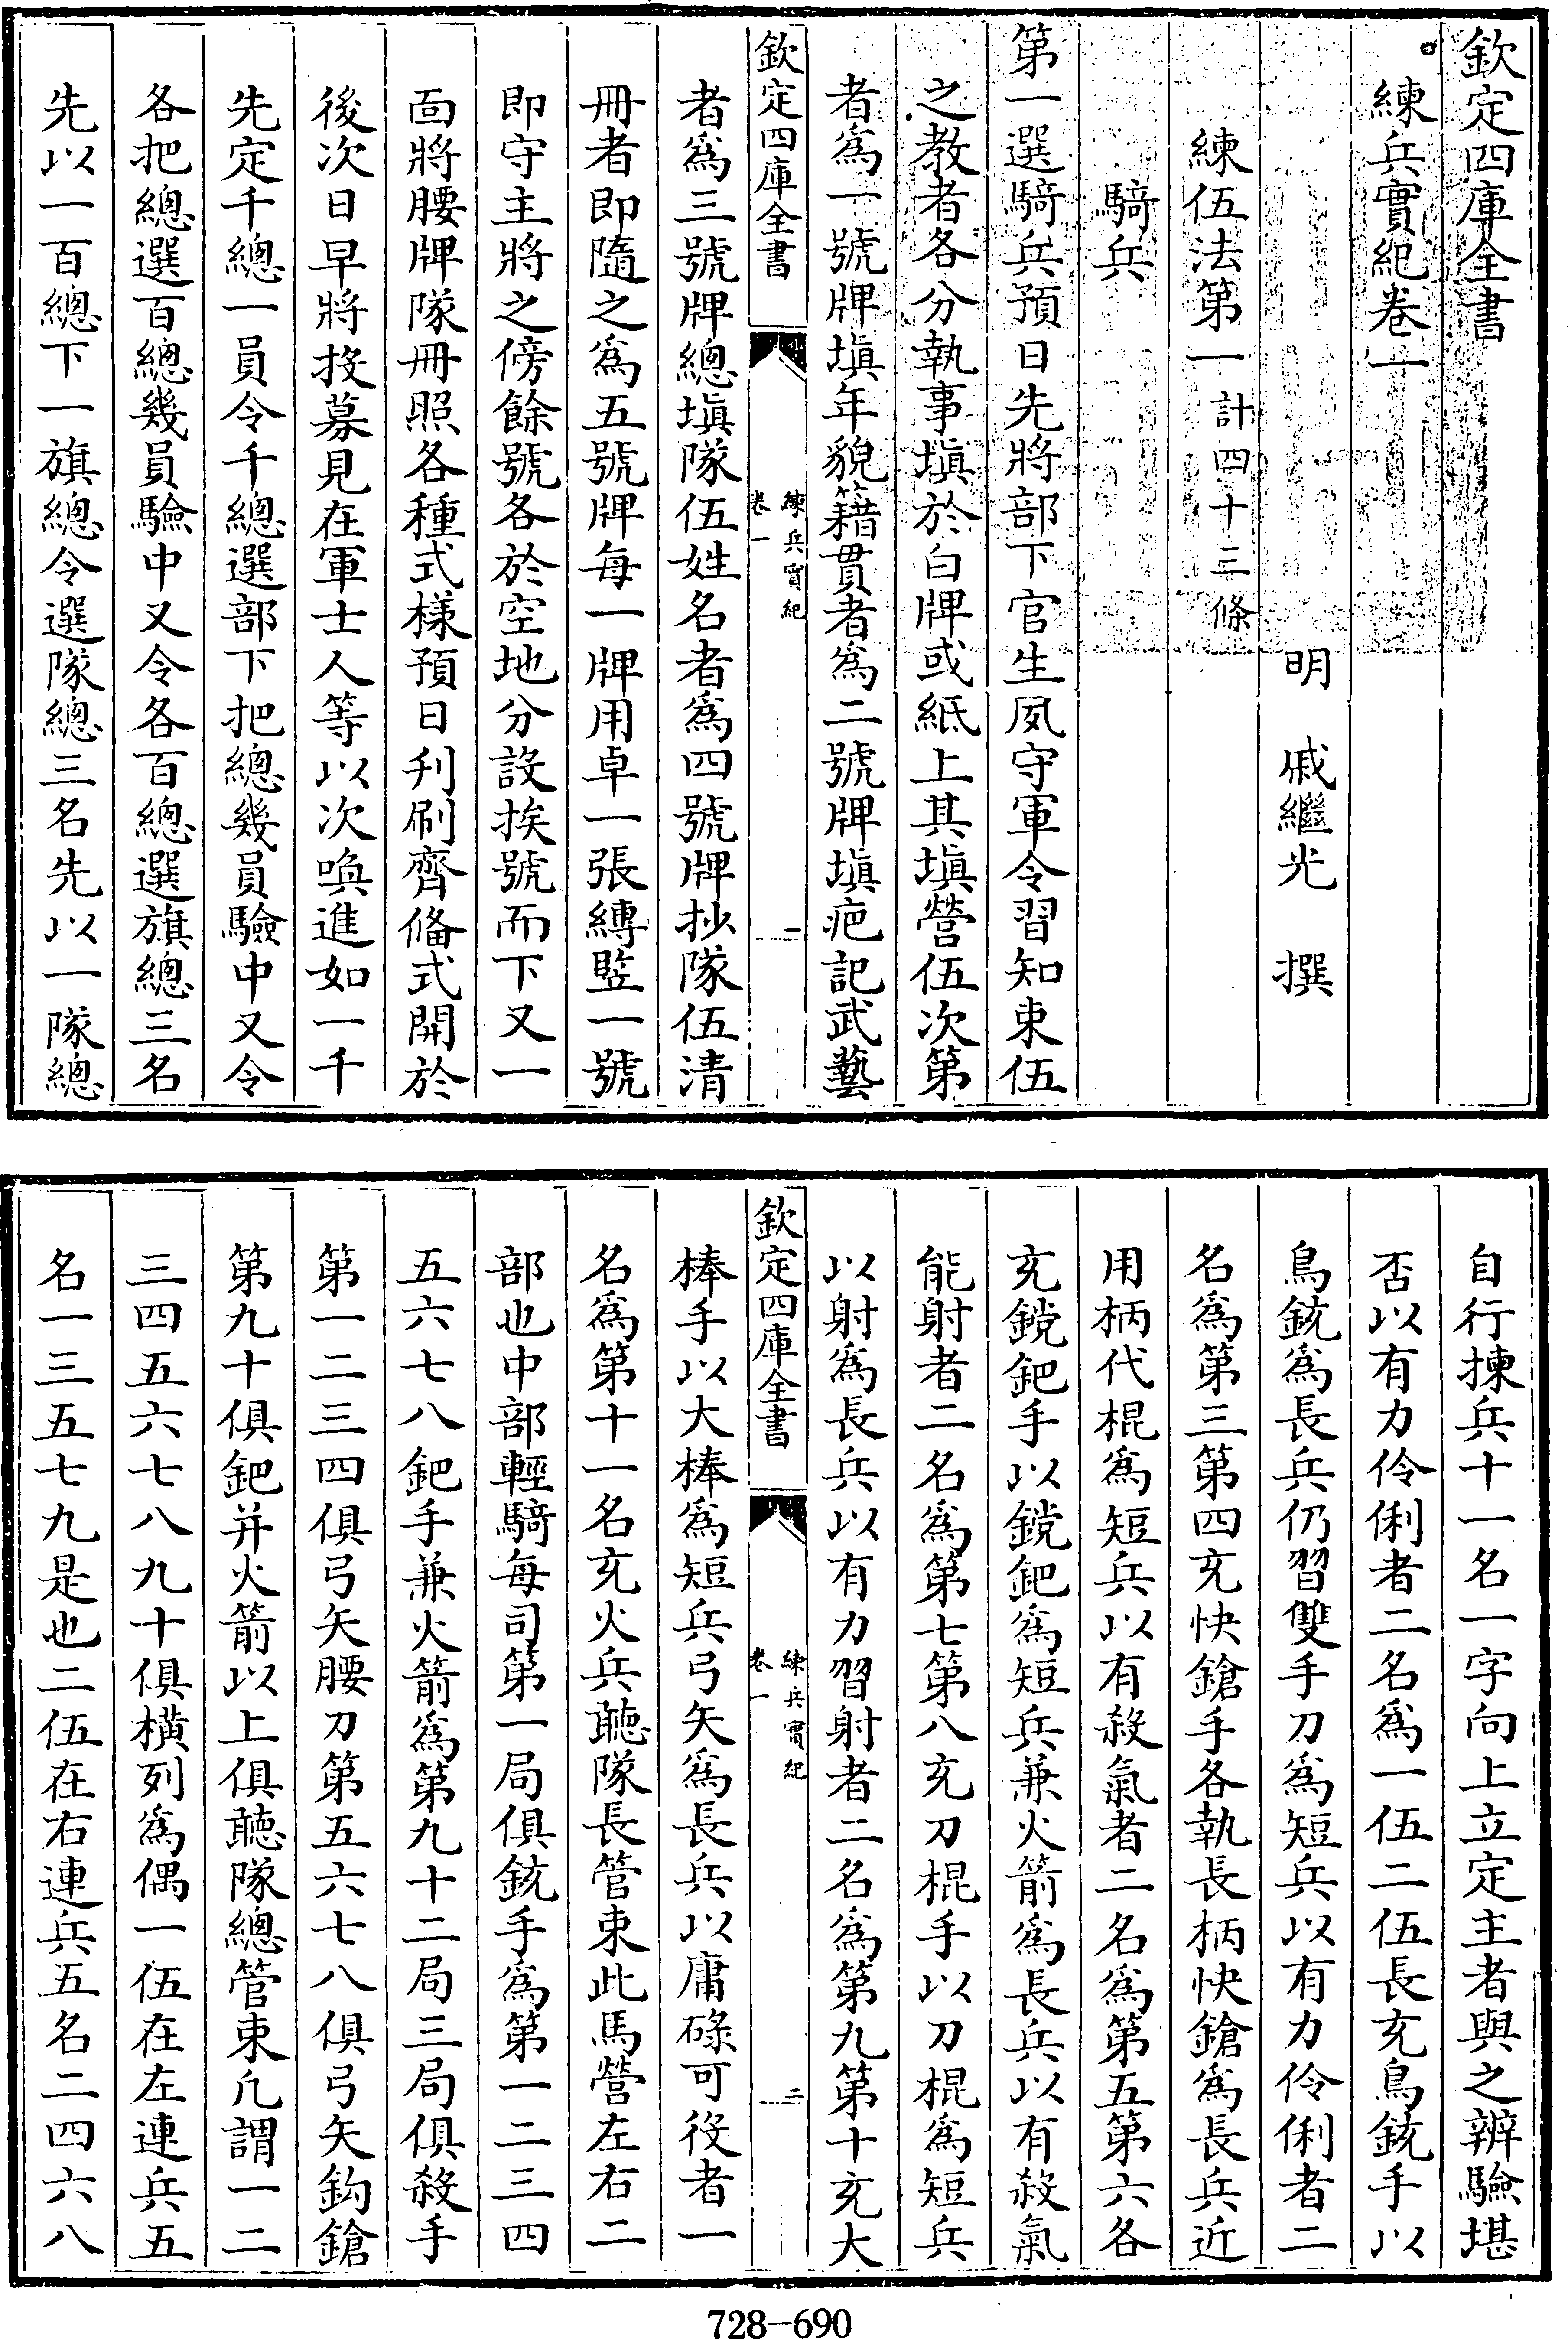 欽定四庫全書
練兵實紀卷一
明 戚繼光 撰
練伍法第一計四十三條
騎兵
第一選騎兵預日先將部下官生夙守軍令習知束伍
之教者各分執事塡於白牌或紙上其塡營伍次第
者爲一號牌塡年貌籍貫者爲二號牌塡疤記武藝
欽定四庫全書
練兵實紀
卷一
一
者爲三號牌總塡隊伍姓名者爲四號牌抄隊伍清
冊者即隨之爲五號牌每一牌用卓一張縛竪一號
即守主將之傍餘號各於空地分設挨號而下又一
面將腰牌隊冊照各種式樣預日刋刷齊備式開於
後次日早將投募見在軍士人等以次喚進如一千
先定千總一員令千總選部下把總幾員驗中又令
各把總選百總幾員驗中又令各百總選旗總三名
先以一百總下一旗總令選隊總三名先以一隊總
自行揀兵十一名一字向上立定主者與之辨驗堪
否以有力伶俐者二名爲一伍二伍長充鳥銃手以
鳥銃爲長兵仍習雙手刀爲短兵以有力伶俐者二
名爲第三第四充快鎗手各執長柄快鎗爲長兵近
用柄代棍爲短兵以有殺氣者二名爲第五第六各
充鏜鈀手以鏜鈀爲短兵兼火箭爲長兵以有殺氣
能射者二名爲第七第八充刀棍手以刀棍爲短兵
以射爲長兵以有力習射者二名爲第九第十充大
欽定四庫全書
練兵實紀
卷一
二
棒手以大棒爲短兵弓矢爲長兵以庸碌可役者一
名爲第十一名充火兵聽隊長管束此馬營左右二
部也中部輕騎每司第一局俱銃手爲第一二三四
五六七八鈀手兼火箭爲第九十二局三局俱殺手
第一二三四俱弓矢腰刀第五六七八俱弓矢鈎鎗
第九十俱鈀并火箭以上俱聽隊總管束凢謂一二
三四五六七八九十俱横列爲偶一伍在左連兵五
名一三五七九是也二伍在右連兵五名二四六八
728-690